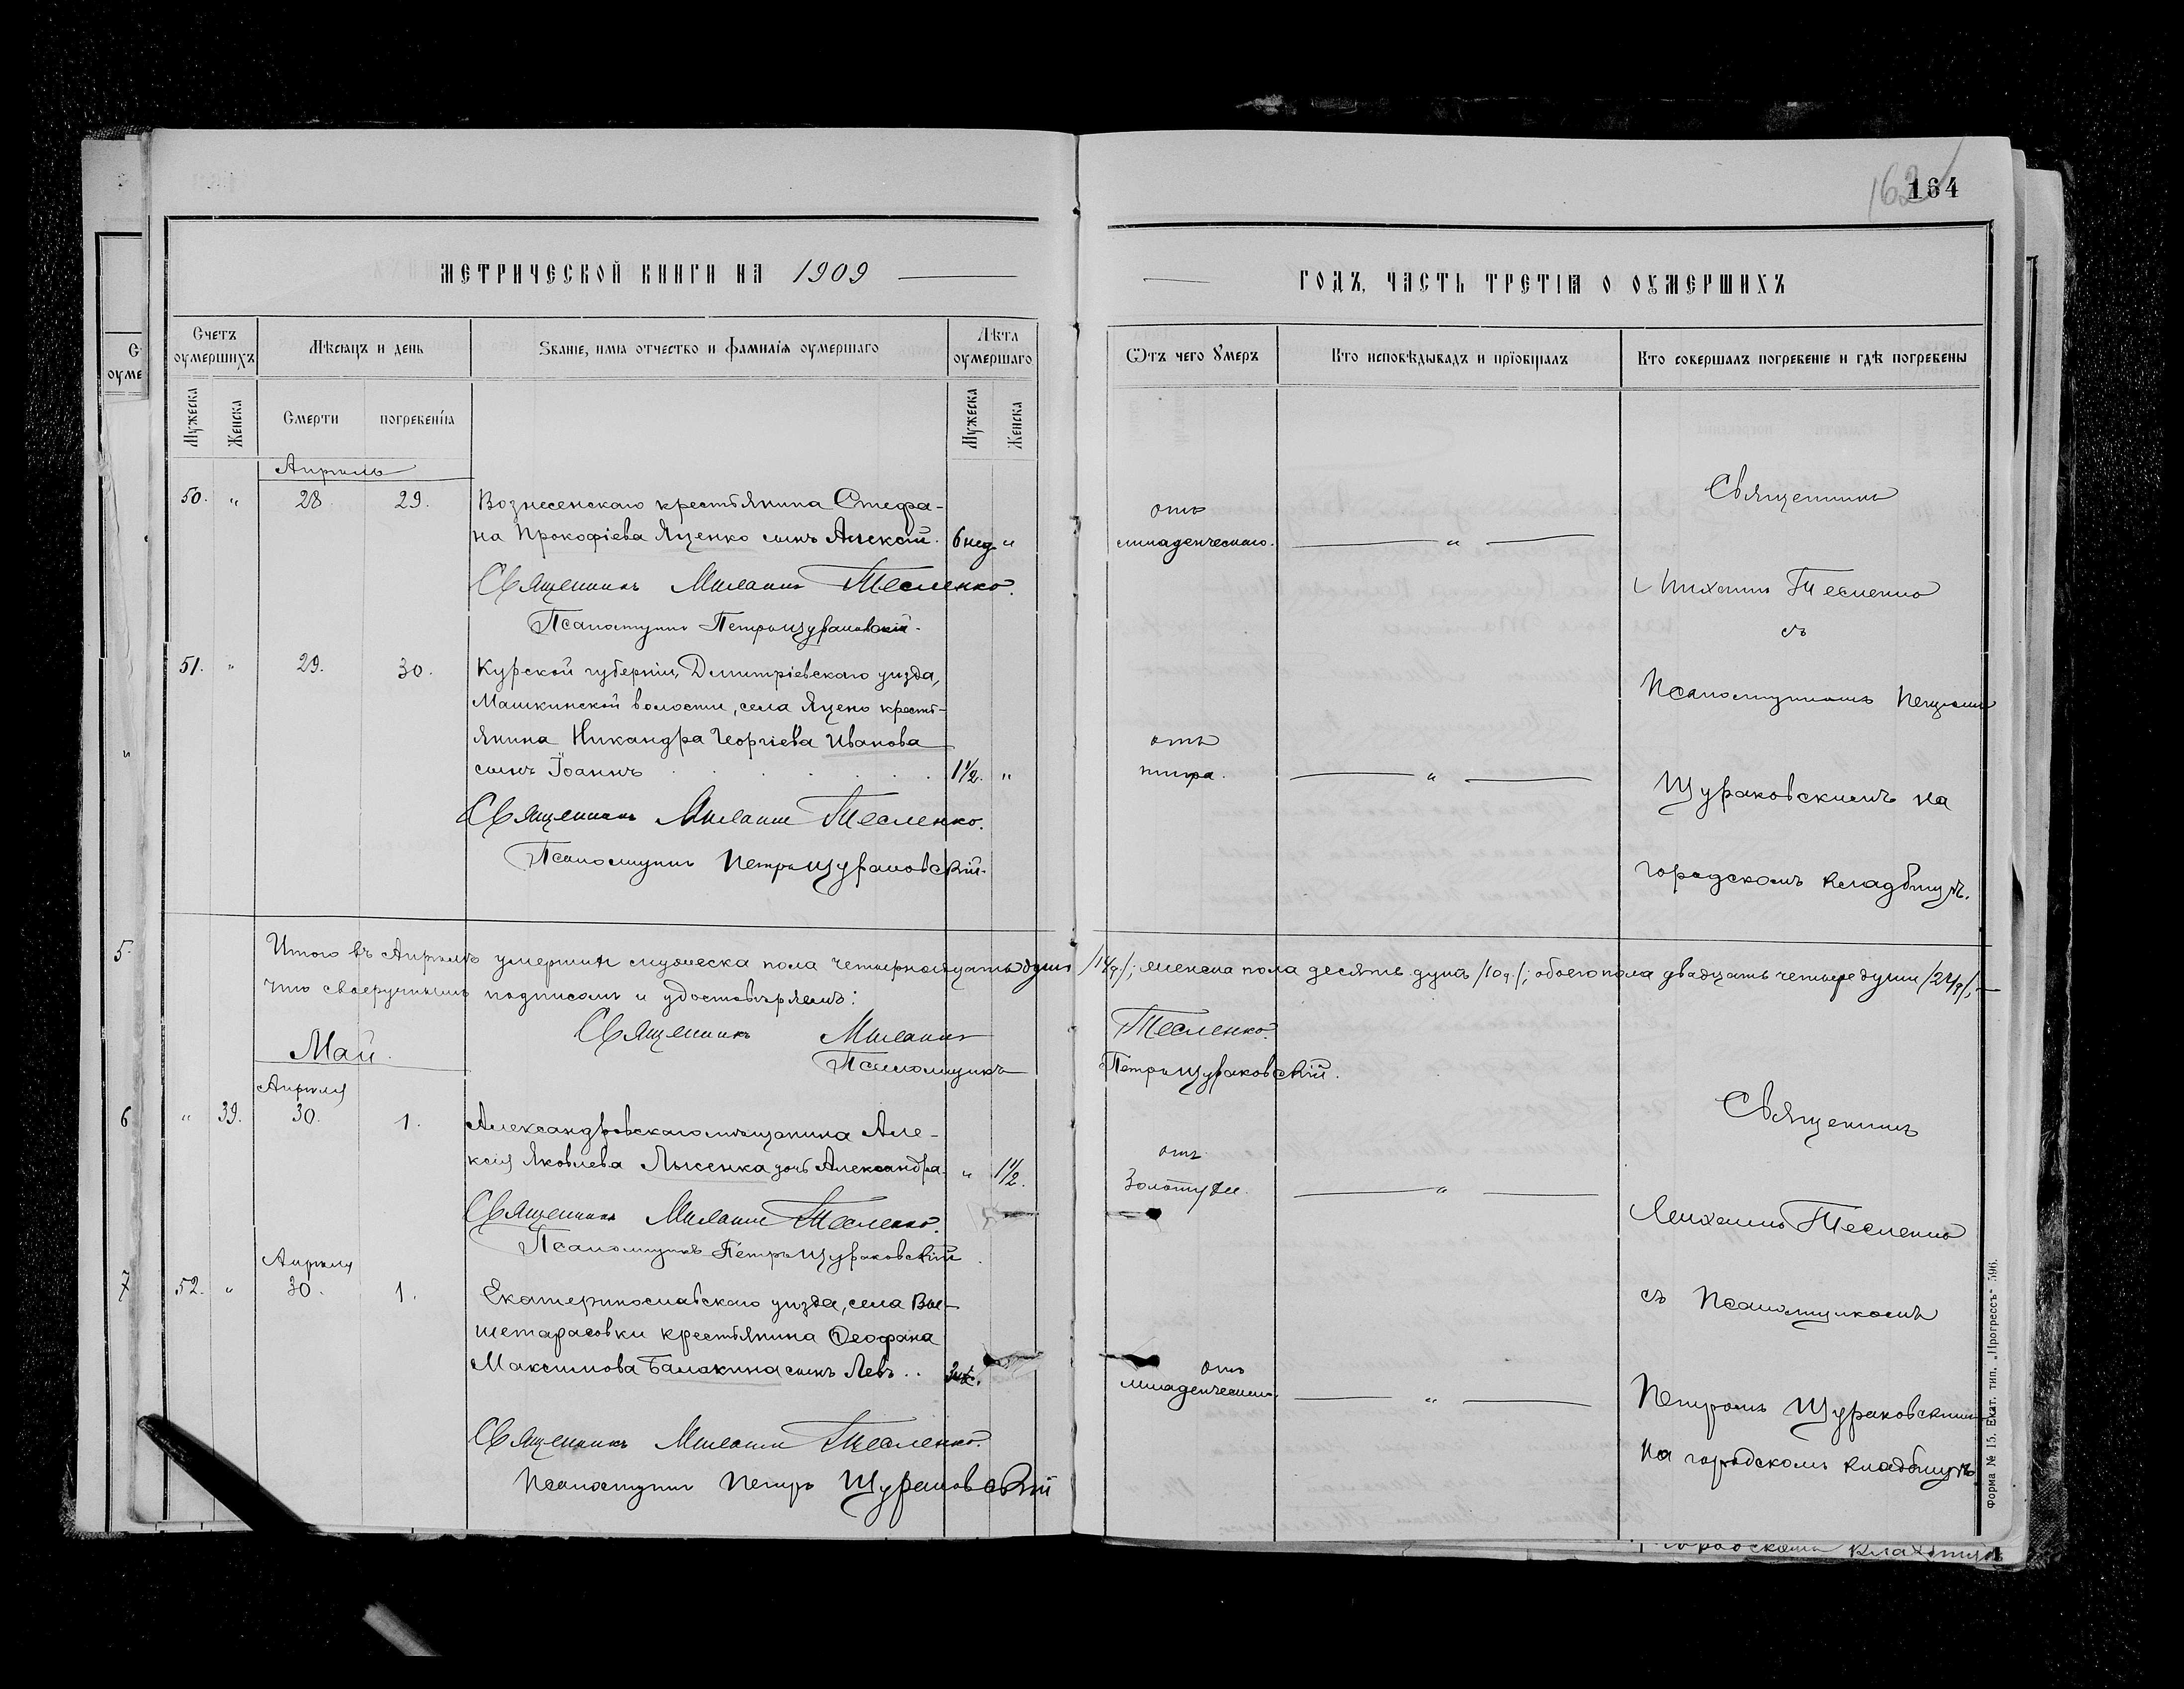 162
164
МЕТРИЧЕСКОЙ КНИГИ НА 1909
ГОДЪ, ЧАСТЬ ТРЕТІѦ О ОУМЕРШИХЪ
Счетъ оумершихъ
Мѣсѧцъ и день
Званіе, имѧ отчество и фамиліѧ оумершаго
Лѣта оумершаго
Ѿтъ чего Умеръ
Кто исповѣдывалъ и прїобщалъ
Кто совершалъ погребеніе и гдѣ погребены
Мужеска
Женска
Смерти
погребенїѧ
Мужеска
Женска
Апрѣль
50. " 28 29. Вознесенскаго крестьянина Стефа-
на Прокофіева Яценко сынъ Алексій. 6 нед. "
отъ
младенческаго. "
Священникъ Михаилъ Тесленко.
Псаломщикъ Петръ Щураковскій.
Священникъ
Михаилъ Тесленко
съ
Псаломщикомъ Петромъ
Щураковскимъ на
городскомъ кладбищѣ.
51. " 29. 30. Курской губерніи, Дмитріевскаго уѣзда,
Машкинской волости, села Яцено кресть-
янина Никандра Георгіева Иванова
сынъ Іоаннъ 1½. "
отъ
тифа. "
Священникъ Михаилъ Тесленко.
Псаломщикъ Петръ Щураковскій.
Итого въ Апрѣлѣ умершихъ мужеска пола четырнадцать душъ /14 д/; женска пола десять душъ /10 д/; обоего пола двадцать четыре души /24 д/,
что своеручнымъ подписомъ и удостовѣряемъ:
Священникъ Михаилъ Тесленко.
Псаломщикъ Петръ Щураковскій.
Май.
Апрѣля
" 39. 30. 1. Александровскаго мѣщанина Але-
ксія Яковлева Лысенка дочь Александра. " 1½.
отъ
Золотухи. "
Священникъ Михаилъ Тесленко.
Псаломщикъ Петръ Щураковскій.
Священникъ
Михаилъ Тесленко
съ Псаломщикомъ
Петромъ Щураковскимъ
на городскомъ кладбищѣ
Апрѣля
52. " 30. 1. Екатеринославскаго уѣзда, села Вое-
шетарасовки крестьянина Ѳеофана
Максимова Балакина сынъ Левъ
отъ
младенческаго. "
Священникъ Михаилъ Тесленко.
Псаломщикъ Петръ Щураковскій
5.
6
7
Форма № 15. Екат. тип. „Прогрессъ“ 596.
городскомъ кладбищѣ